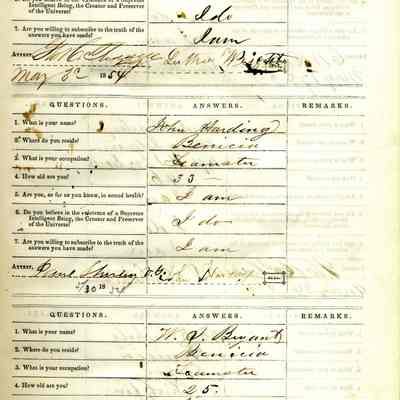 6. Do you believe in the existence of a Supreme
Intelligent Being, the Creator and Preserver
of the Universe?
I do
7. Are you willing to subscribe to the truth of the
answers you have made?
I am
Attest,
May 3d 1854
QUESTIONS. ANSWERS. REMARKS.
1. What is your name? John Harding
2. Where do you reside? Benicia
3. What is your occupation? Teamster
4. How old are you? 33
5. Are you, so far as you know, in sound health? I am
6. Do you believe in the existence of a Supreme
Intelligent Being, the Creator and Preserver
of the Universe?
I do
7. Are you willing to subscribe to the truth of the
answers you have made?
I am
Attest, Harding
/30 18 54
QUESTIONS. ANSWERS. REMARKS.
1. What is your name? W. J. Bryant
2. Where do you reside? Benicia
3. What is your occupation? Teamster
4. How old are you? 25.